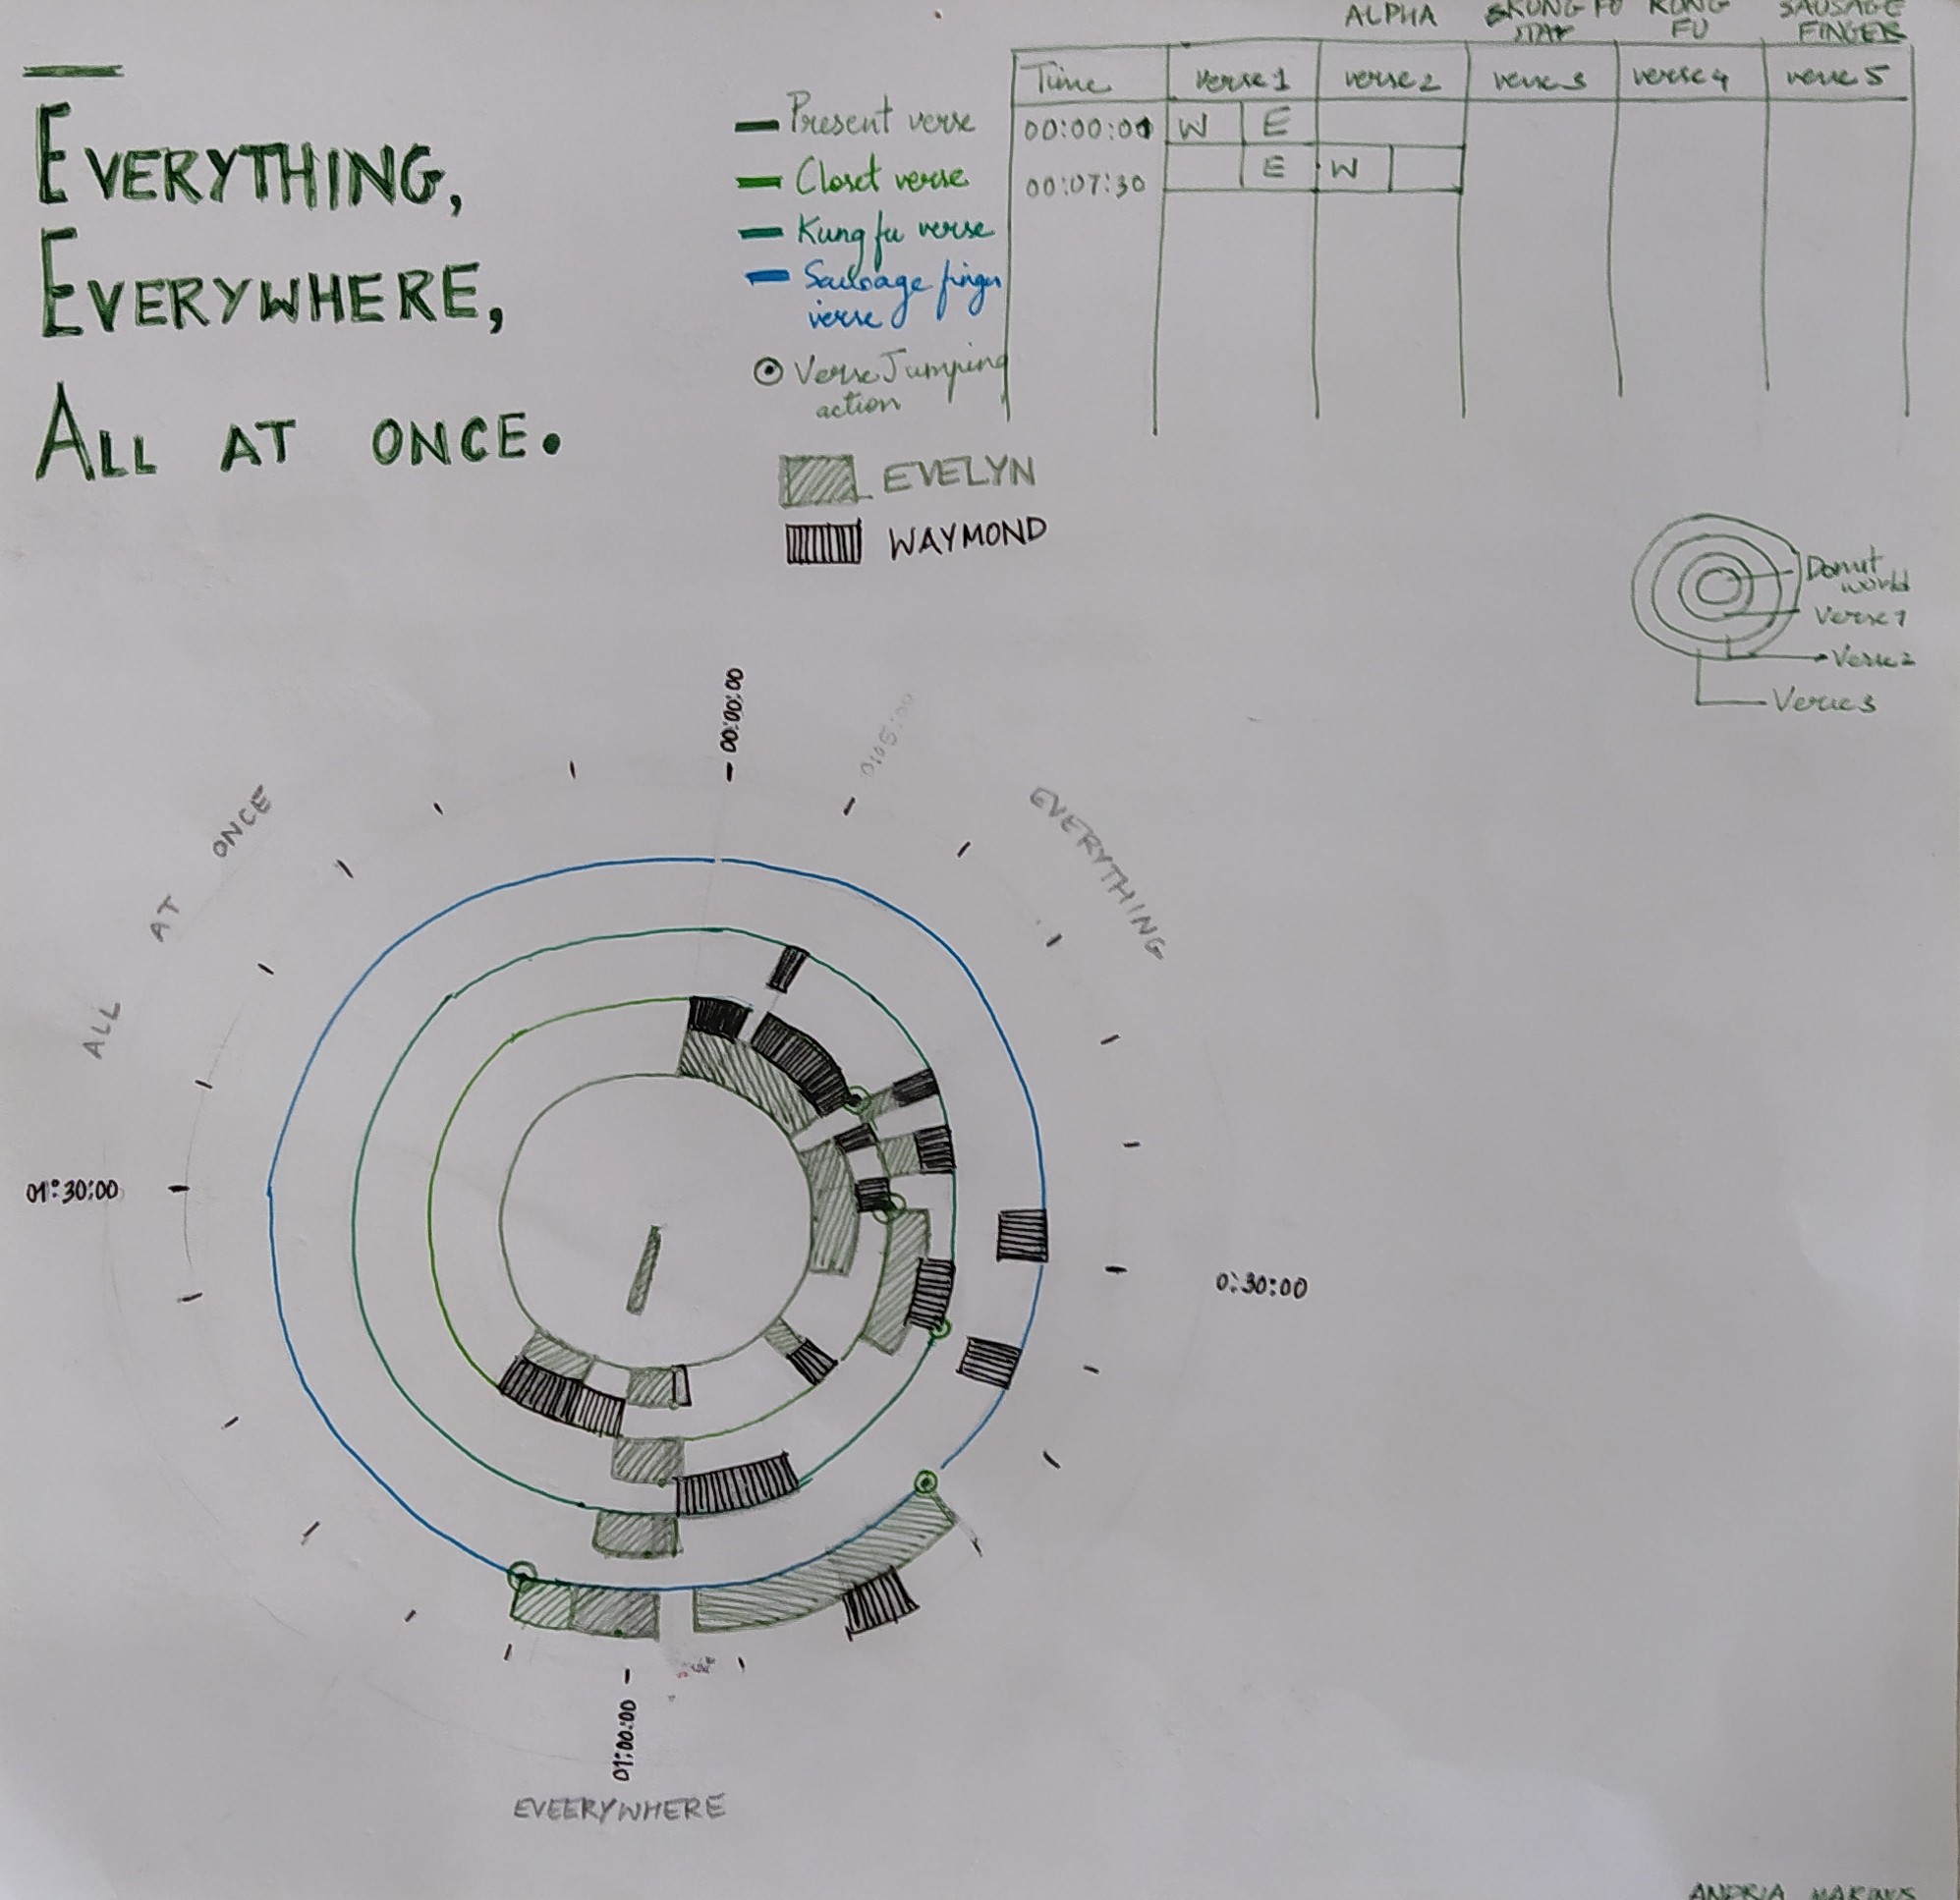 EVERYTHING,
EVERYWHERE,
ALL AT ONCE.
Present verse
Closet verse
Kung fu verse
Sausage finger
verse
Verse Jumping
action
EVELYN
WAYMOND
ALPHA KUNG FU KUNG SAUSAGE
STAR FU FINGER
Time verse 1 verse 2 verse 3 verse 4 verse 5
00:00:01 W E
00:07:30 E W
Donut
world
Verse 1
Verse 2
Verse 3
00:00:00
0:05:00
EVERYTHING
0:30:00
01:00:00
EVEERYWHERE
01:30:00
ALL AT ONCE
ANDRIA